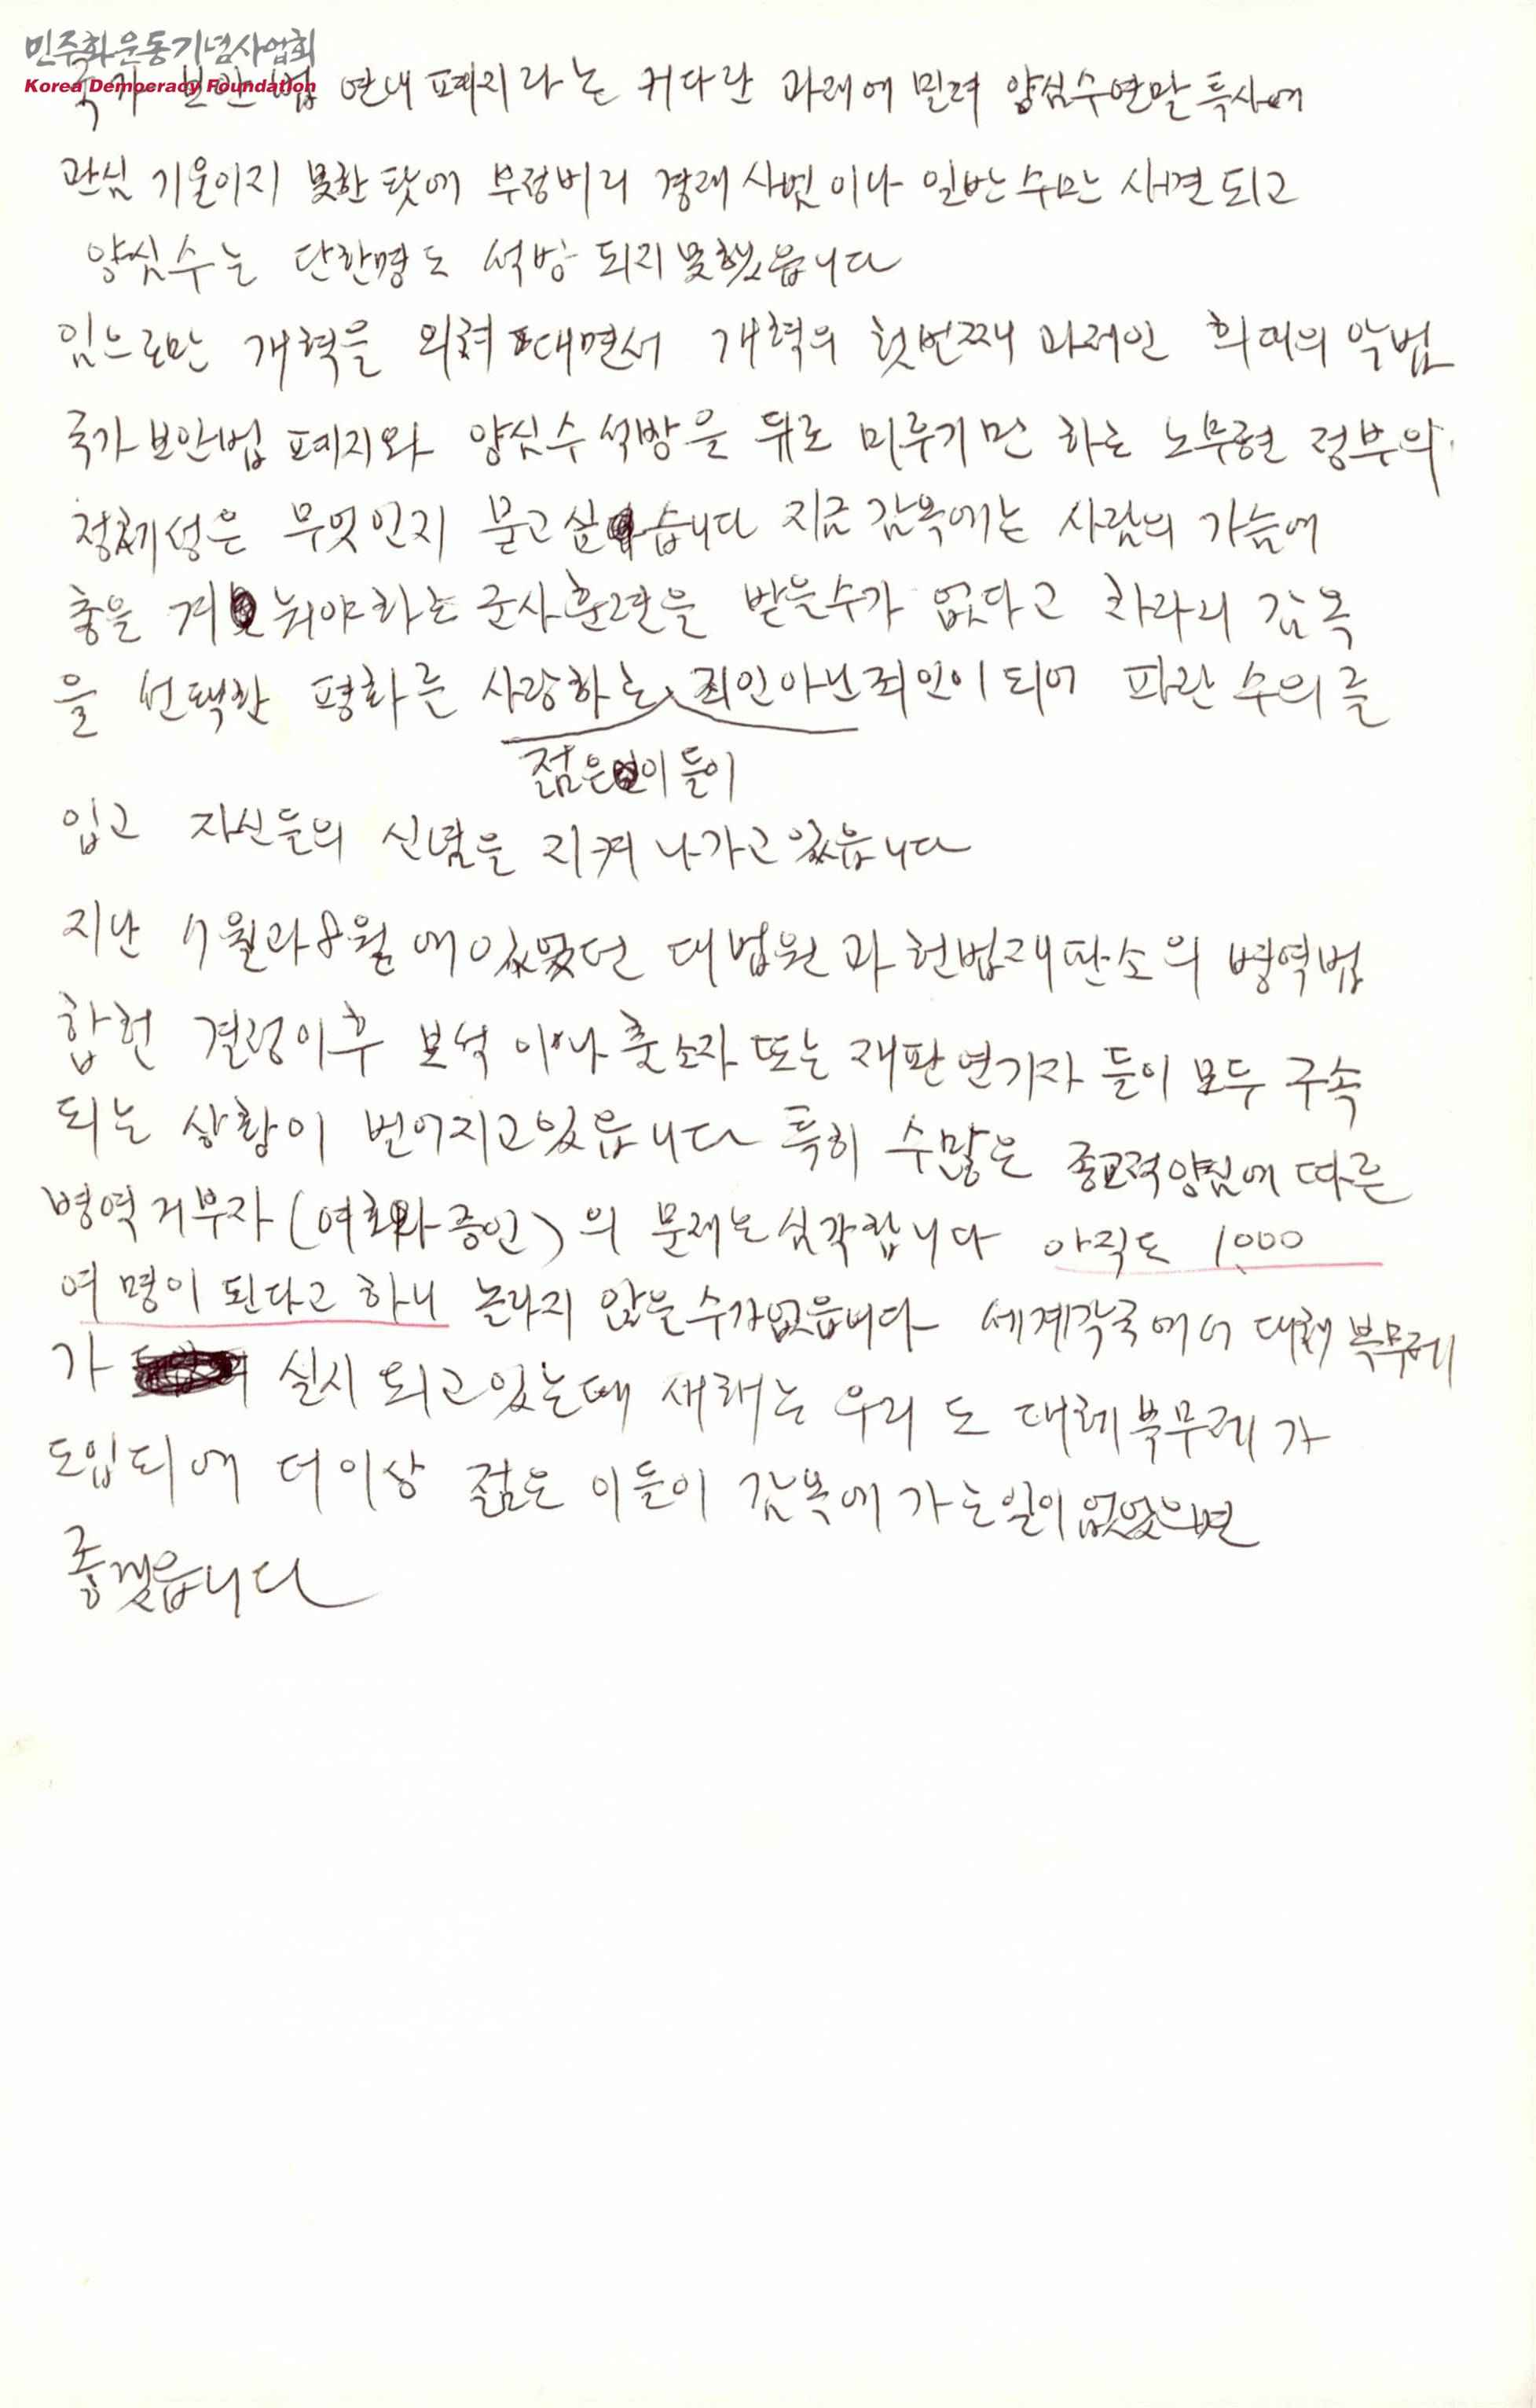 민주화운동기념사업회
Korea Democracy Foundation
국가 보안법 연내 폐지라는 커다란 과제에 밀려 양심수연말 특사에
관심 기울이지 못한 탓에 부정비리 경제사범이나 일반수만 사면되고
양심수는 단한명도 석방 되지 못했읍니다
입으로만 개혁을 외쳐대면서 개혁의 첫번째 과제인 희대의 악법
국가보안법 폐지와 양심수 석방을 뒤로 미루기만 하는 노무현 정부의
정체성은 무엇인지 묻고싶습니다 지금 감옥에는 사람의 가슴에
총을 겨눠야하는 군사훈련을 받을수가 없다고 차라리 감옥
을 선택한 평화를 사랑하는 죄인아닌죄인이 되어 파란 수의를
젊은이들이
입고 자신들의 신념을 지켜 나가고있읍니다
지난 7월과8월에있었던 대법원과 헌법재판소의 병역법
합헌 결정이후 보석 이나 출소자 또는 재판연기자 들이 모두 구속
되는 상황이 번어지고있읍니다 특히 수많은 종교적양심에 따른
병역거부자 (여호와증인)의 문제는 심각합니다 아직도 1,000
여 명이 된다고 하니 놀라지 않을수가없읍니다 세계각국에서 대체복무제
가 실시 되고있는데 새해는 우리도 대체복무제가
도입되에 더이상 젊은 이들이 감옥에 가는일이 없었으면
좋겠읍니다